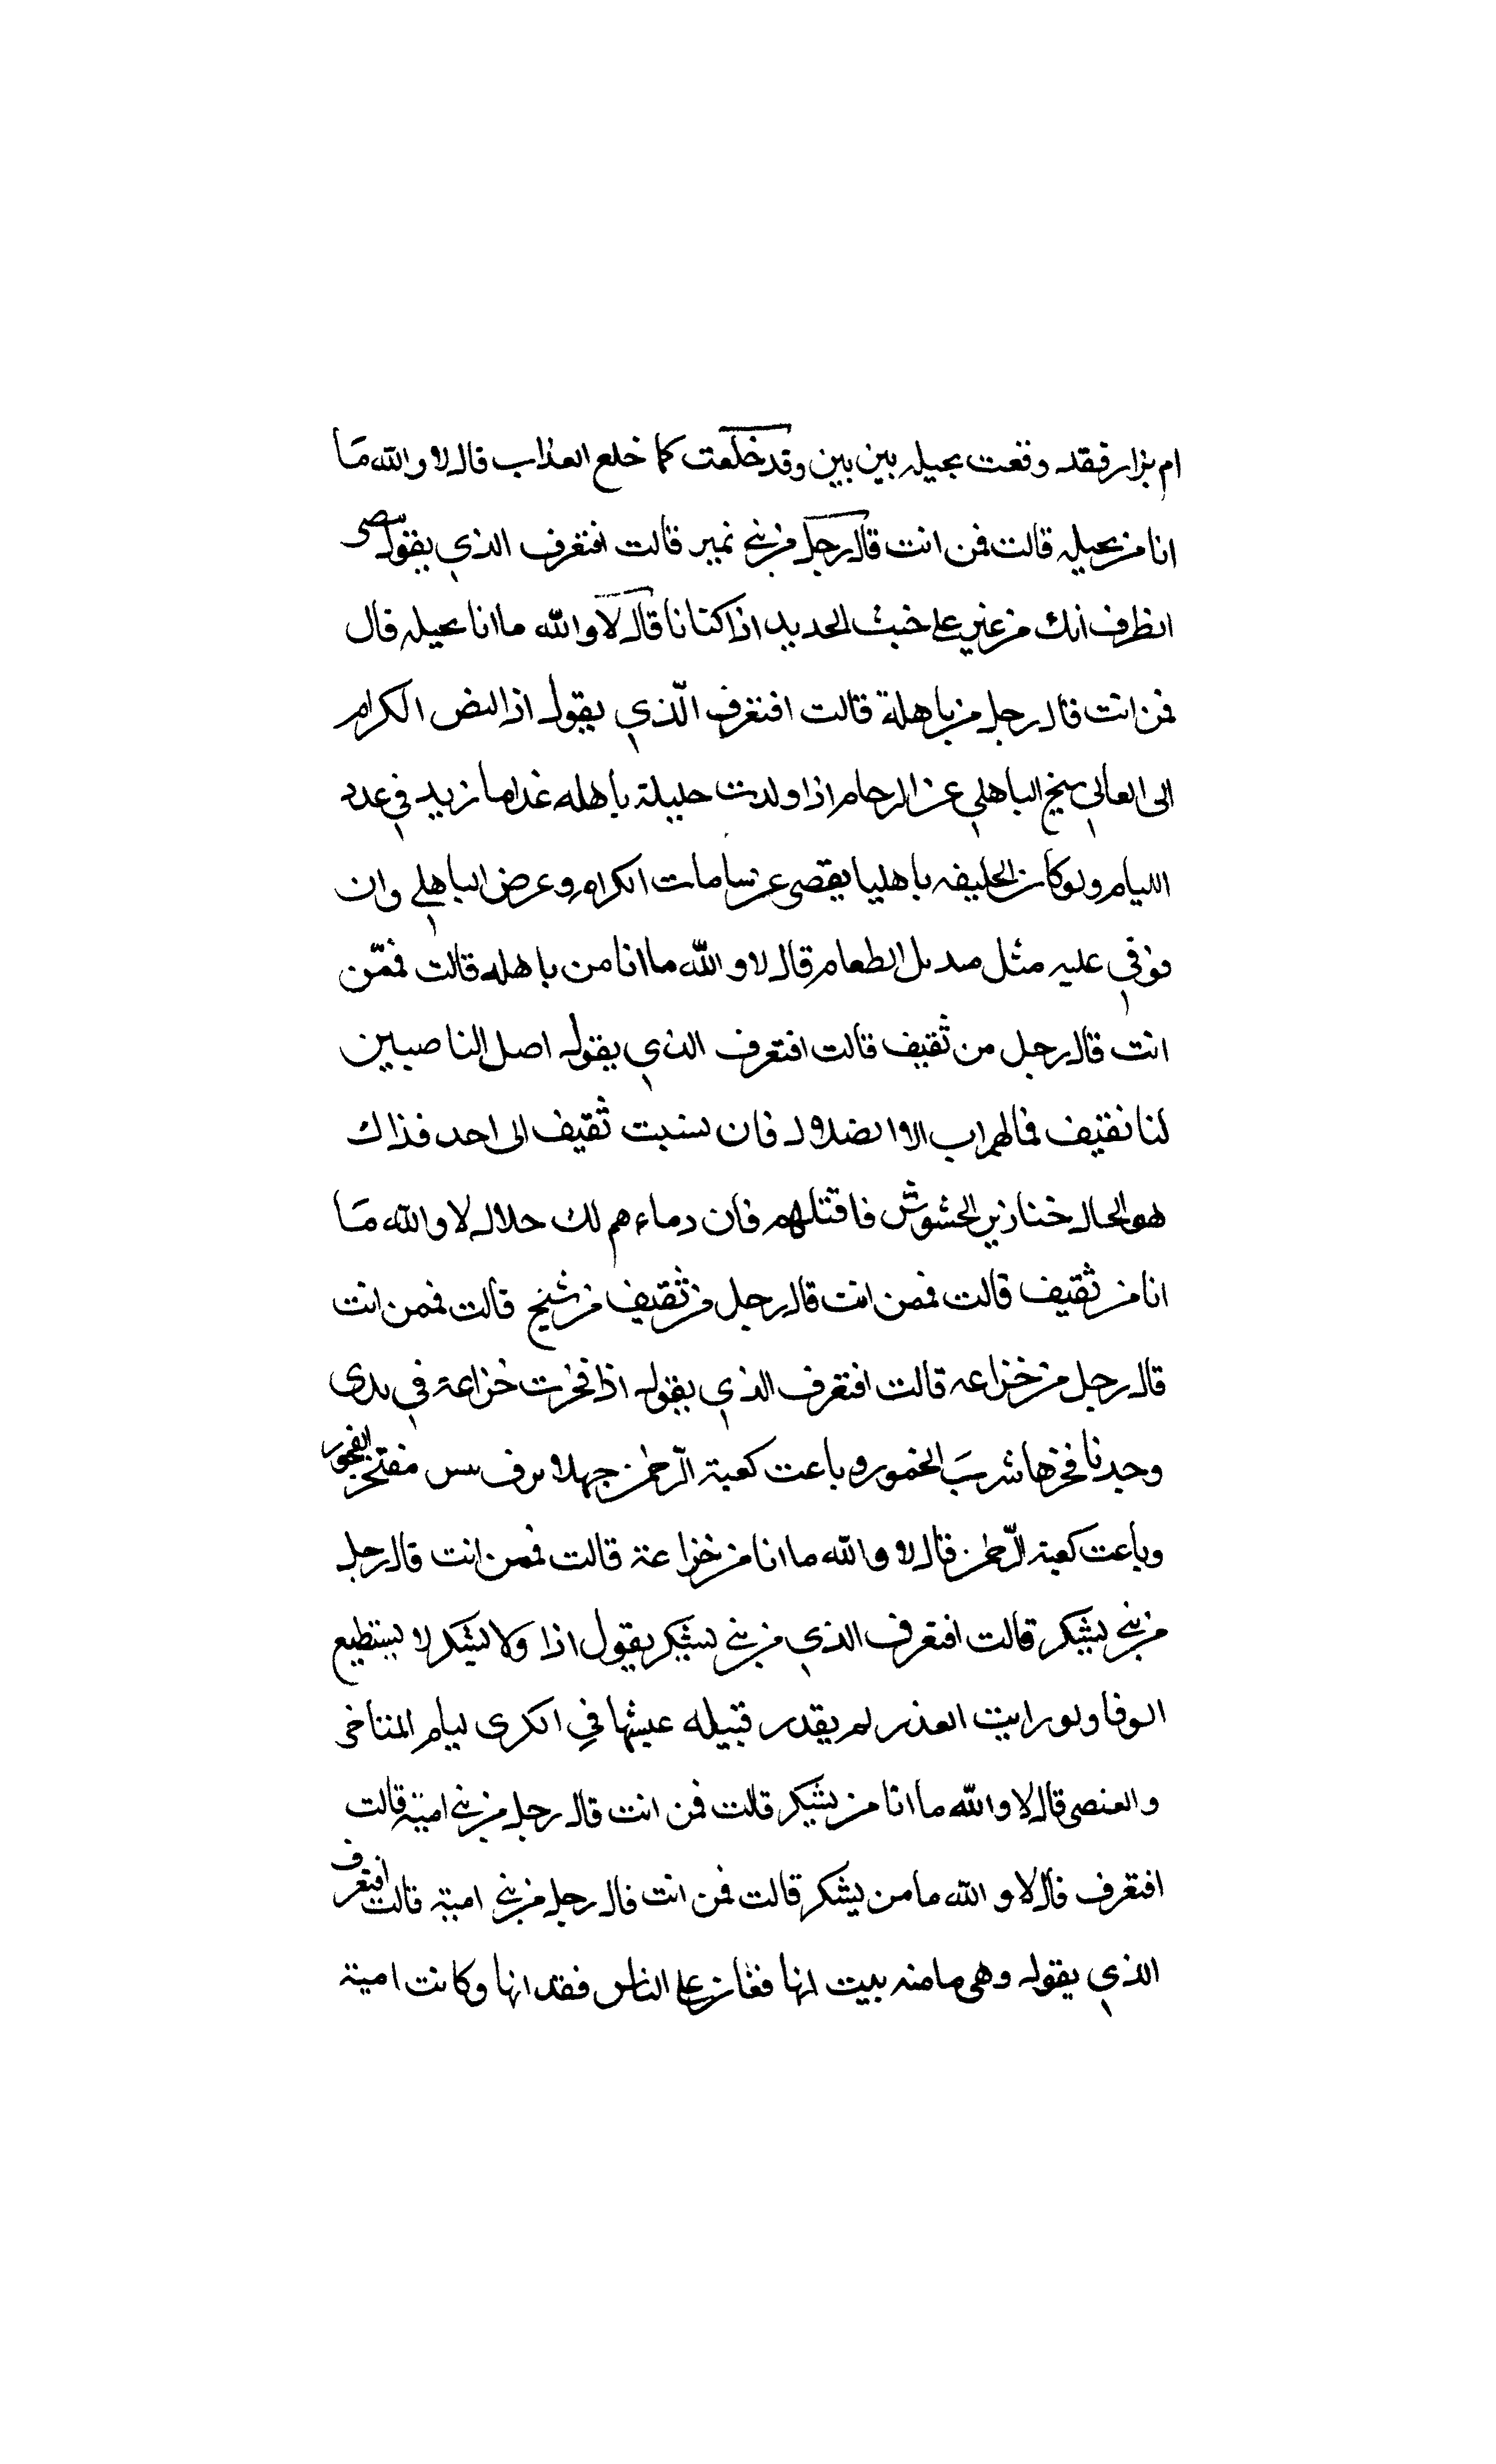 ام نزار فقد وقعت بجيله بين بين وقد خلعت كما خلع العذاب قال لا والله مَا
انا من بجيله قالت فمن انت قال رجل من بني نمير قالت افتعرف الذي يقول
انك من على خبث الحديد اذا كتانا قال لا والله ما انا بجيله قال
فمن انت قال رجل من باهلة قالت افتعرف الّذي يقول اذا الكرام
الى العالي الباهلي عن الزحام اذا ولدت حليلة باهله غداما زيد في عدد
الليام ولو كان الخليفه باهليا يقصى عن سامات الكرام وعرض الباهلي وان
توفي عليه مثل الطعام قال لا و الله ما انا من باهله قالت فممّن
انت قال رجل من ثقيف قالت افتعرف الذي يقول اصل الناصبين
لنا ثقيف فما لهم اب الا الضلال فان نسبت ثقيف الى احد فذاك
هو الحال خنازير الحشوش فاقتلهم فان دماءهم لك حلال لا والله مَا
انا من ثقيف قالت فمن انت قال رجل من ثقيف من شيخ قالت فمن انت
قال رجل من خزاعه قالت افتعرف الذي يقول اذا فخرت خزاعة في ندى
وجدنا فخرها شربَ الخمور وباعت كعبة الرّحمن جهلا مفتخر الفجور
وباعت كعبة الرّحمن قال لا والله ما انا من خزاعة قالت فممن انت قال رجل
من بني يشكر قالت افتعرف الذي من بني يشكر يقول اذا ولا يشكر لا يستطيع
الوفا ولو رايت العذر لم يقدر قبيله عيشها في الكرى ليام المناخى
والعنصى قال لا والله ما انا من يشكر قلت فمن انت قال رجل من بني امية قالت
افتعرف قال لا و الله ما من يشكر قالت فمن انت قال رجل من بني امية قالت افتعرف
الذي يقول وهى مامنه بيت انها فغان على الناس فقد انها وكانت امية